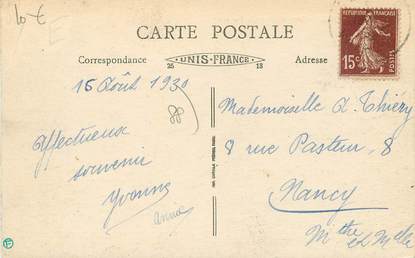 10 €
CARTE POSTALE
Correspondance
UNIS-FRANCE
25
13
Adresse
REPUBLIQUE FRANÇAISE
15c
POSTES
15 Août 1930
88
Affectueux
souvenir
Yvonne
Mademoiselle A. Thiéry
8 rue Pasteur, 8
Nancy
Mthe et Mlle